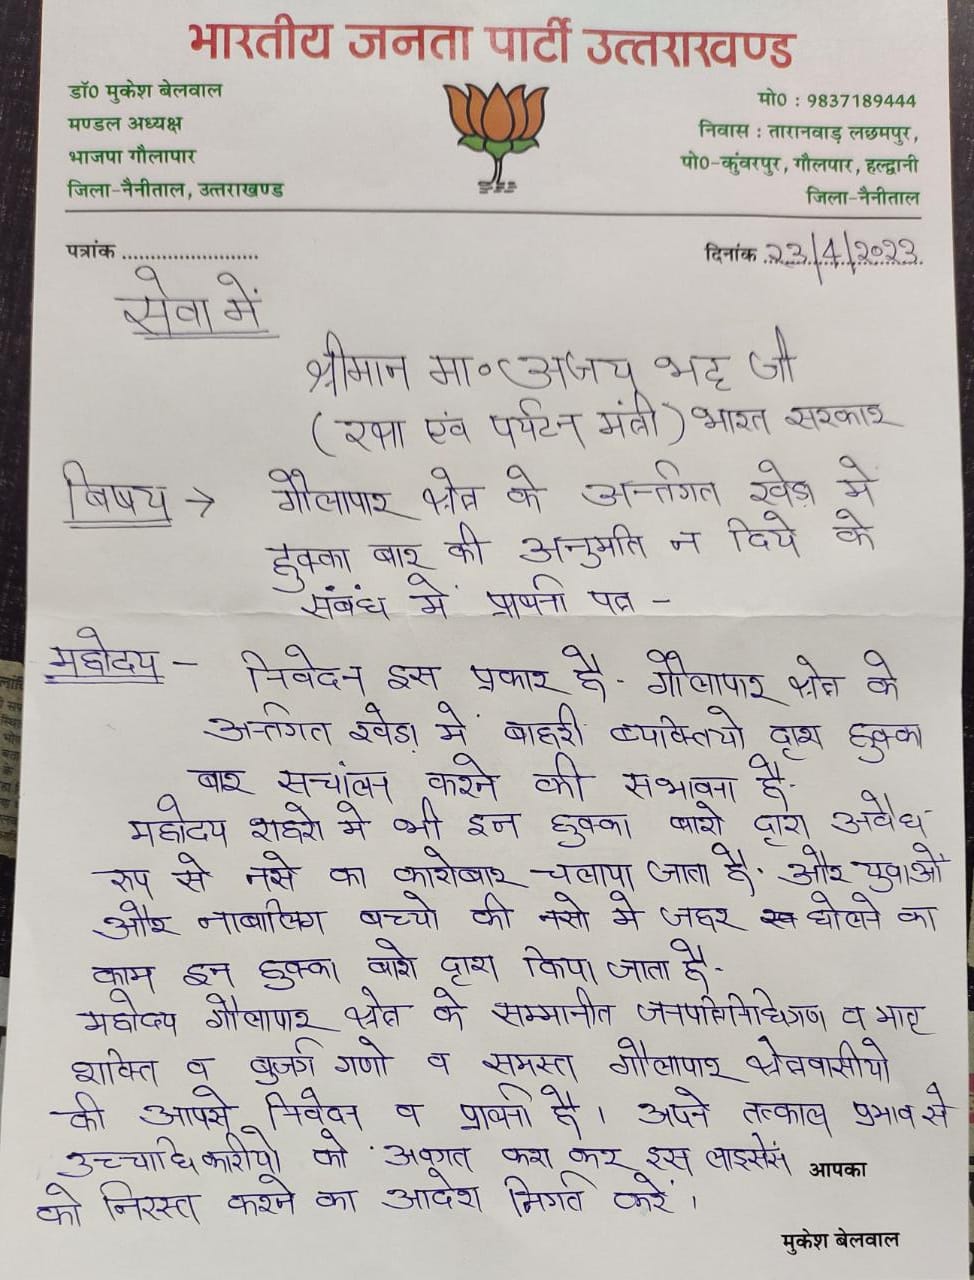 भारतीय जनता पार्टी उत्तराखण्ड
डॉ0 मुकेश बेलवाल
मण्डल अध्यक्ष
भाजपा गौलापार
जिला-नैनीताल, उत्तराखण्ड
मो0 : 9837189444
निवास : तारानवाड़ लछमपुर,
पो0-कुंवरपुर, गौलपार, हल्द्वानी
जिला-नैनीताल
पत्रांक ........................
दिनांक 23/4/2023
सेवा में
श्रीमान मा॰ अजय भट्ट जी
(रक्षा एवं पर्यटन मंत्री) भारत सरकार
बिषय → गौलापार क्षेत्र के अर्न्तगत खेड़ा में
हुक्का बार की अनुमति न दिये के
संबंध में प्रार्थना पत्र -
महोदय - निवेदन इस प्रकार है - गौलापार क्षेत्र के
अर्न्तगत खेड़ा में बाहरी व्यक्तियो द्वारा हुक्का
बार सन्चांलन करने की सभावना है -
महोदय शहरो मे भी इन हुक्का बारो द्वारा अवैध
रुप से नसे का कारोबार चलाया जाता है. और युवाओं
और नाबालिग बच्चो की नसो मे जहर घोलने का
काम इन हुक्का बारो द्वारा किया जाता है -
महोदय गौलापार क्षेत्र के सम्मानीत जनप्रतिनिधिगण व मातृ
शक्ति व बुजर्ग गणो व समस्त गौलापार क्षेत्रवासीयो
की आपसे निवेदन व प्रार्थना है । अपने तत्काल प्रभाव से
उच्चाधिकारीयो को अवगत करा कर इस लाइसेंस
को निरस्त करने का आदेश निर्गत करें ।
आपका
मुकेश बेलवाल